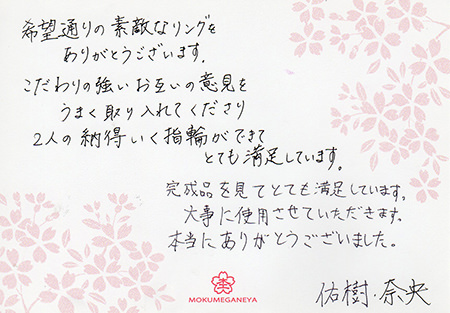 希望通りの素敵なリングを
ありがとうございます。
こだわりの強いお互いの意見を
うまく取り入れてくださり
2人の納得いく指輪ができて
とても満足しています。
完成品を見てとても満足しています。
大事に使用させていただきます。
本当にありがとうございました。
佑樹・奈央
MOKUMEGANEYA